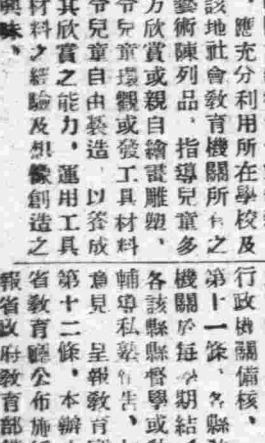 應充分利用所在學校及
該地社會教育機關所有之
藝術陳列品，指導兒童多
方欣賞或親自繪畫雕塑，
令兒童環觀或發工具材料
令兒童自由製造，以養成
其欣賞之能力，運用工具
材料之經驗及想像創造之
興味、
行政機關備核、
第十一條、各縣
機關於每學期結
各該縣縣督學或
輔導私塾
意見，呈報教育
第十二條、本辦
省教育廳公布施
報省政府教育部